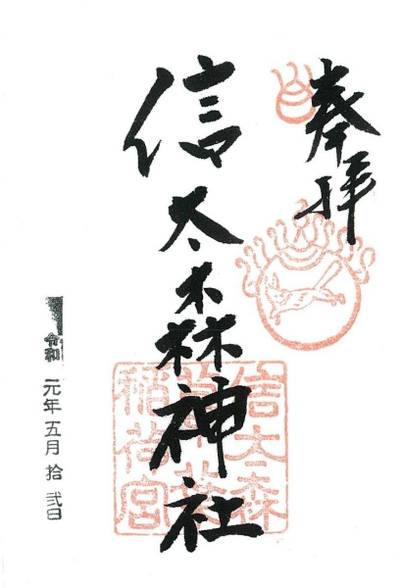 奉拝
信太森神社
信太森
稲荷宮
令和元年五月拾弐日